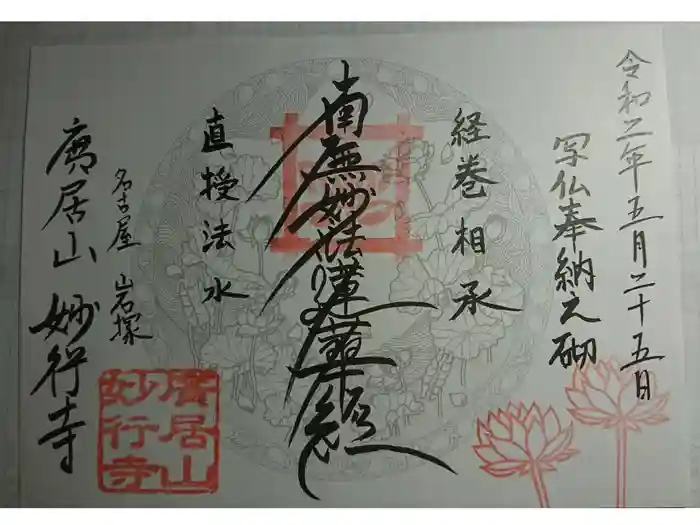 令和二年五月二十五日
写仏奉納之砌
経巻相承
南無妙法蓮華経
直授法水
名古屋 岩塚
廣居山 妙行寺
廣居山
妙行寺